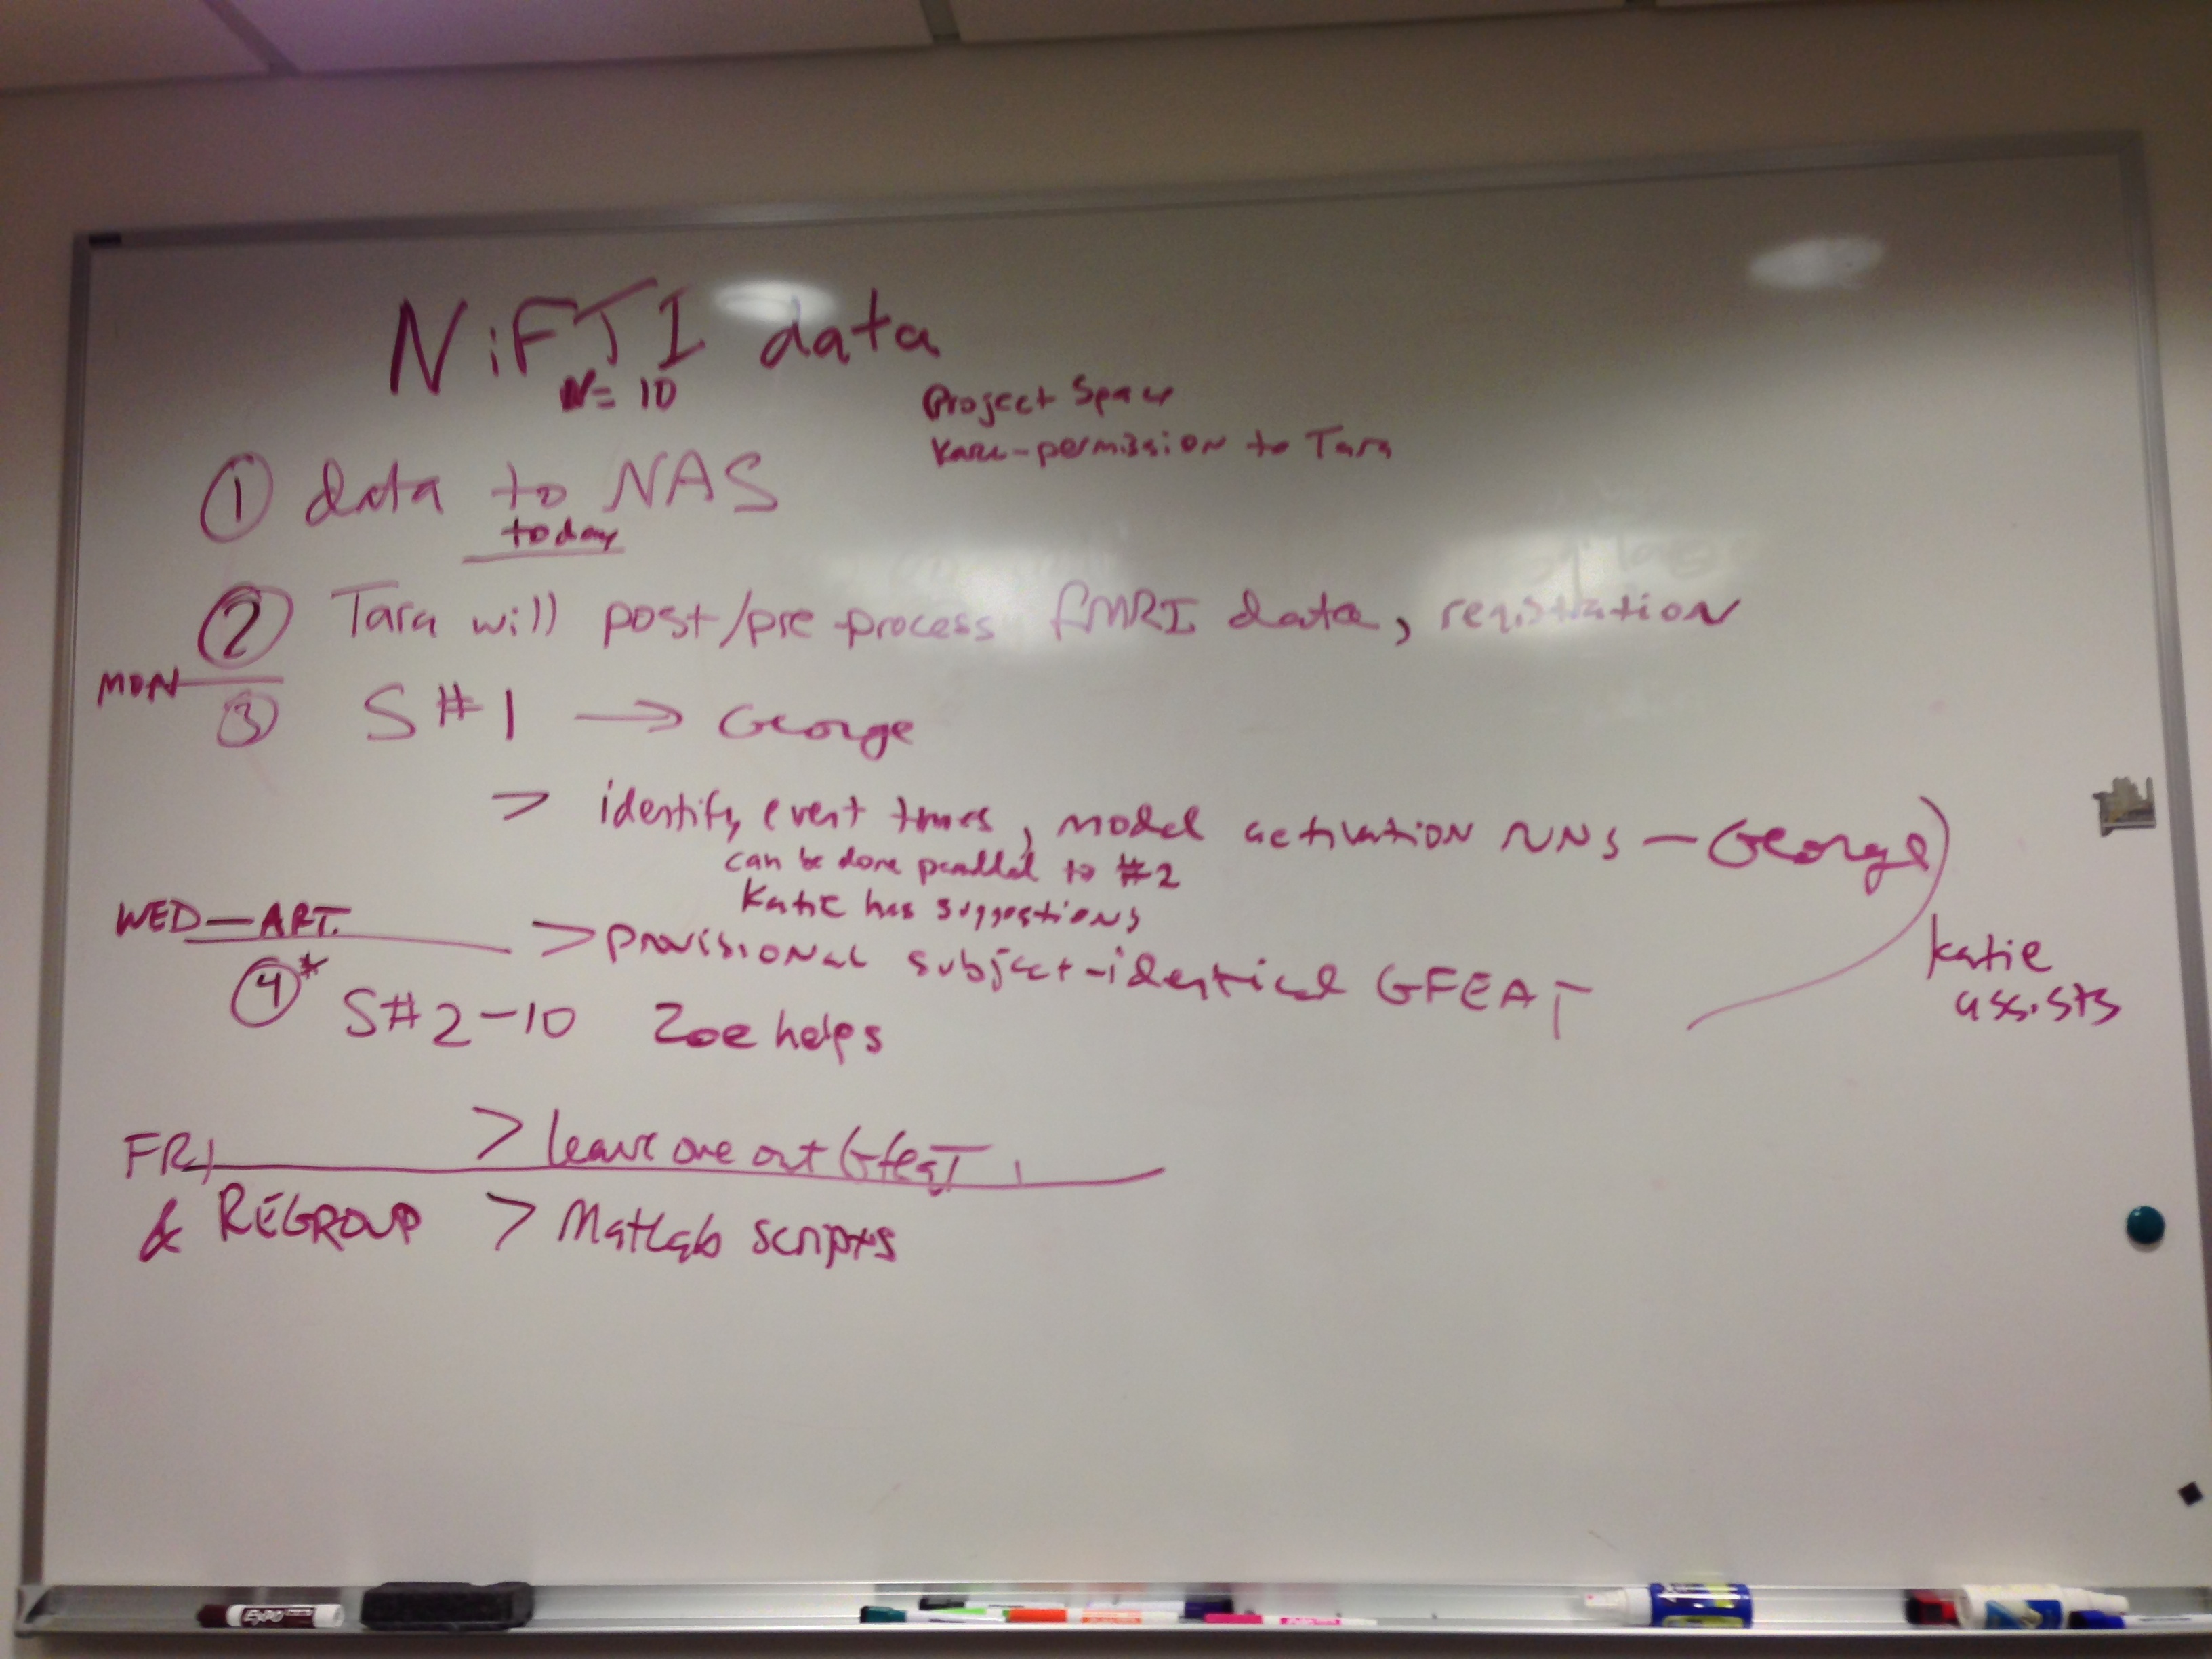 NiFTI data
N= 10
Project Space
Kara-permission to Tara
① data to NAS
today
② Tara will post/pre process fMRI data, registration
MON
③ S#1 → George
> identify event times, model activation NNS - George
can be done parallel to #2
Katie has suggestions
WED—AFT.
> provisional subject-identical GFEAT
Katie
assists
④* S#2-10 Zoe helps
> leave one out GfeaT
FRI
& REGROUP > Matlab scripts
EXPO